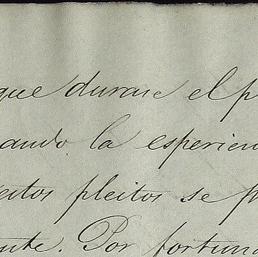 que durase el p
ando la esperien
atos pleitos se p
nte. Por fortuna